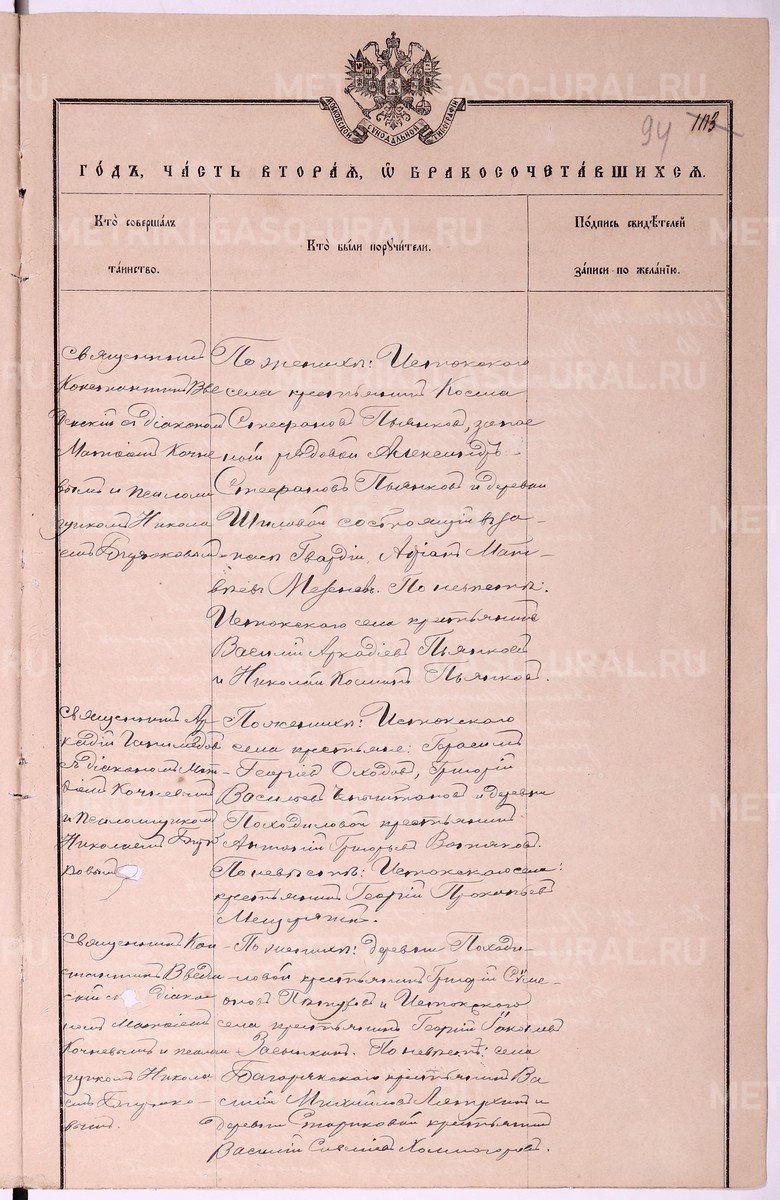 МОСКОВСКОЙ СИНОДАЛЬНОЙ ТИПОГРАФІИ
94 103
ГОДЪ, ЧАСТЬ ВТОРАЯ, Ѿ БРАКОСОЧЕТАВШИХСЯ.
Кто совершалъ таинство.
Кто были поручители.
Подпись свидѣтелей записи по желанію.
Священникъ
Константинъ Вве
денскій съ діакономъ
Матѳіемъ Кочне
вымъ и псалом
щикомъ Никола
емъ
По женихѣ: Истокского
села крестьянинъ Косма
Стефановъ Пьянковъ, запас
ной рядовой Александръ
Стефановъ Пьянковъ и деревни
Шиловой состоящій въ за-
пасѣ Гвардіи, Матѳ-
ѣевъ Мезеневъ. По невѣстѣ:
Истокского села крестьянинъ
Василій Аркадіевъ Пьянковъ
и Николай Косминъ Пьянковъ.
Священникъ Ар
кадій Ганимедовъ
съ діакономъ Мат-
ѳіемъ Кочневымъ
и псаломщикомъ
Николаемъ
По женихѣ: Истокского
села крестьяне: Герасимъ
Георгіевъ Осходовъ, Григорій
Васильевъ и деревни
Походиловой крестьянинъ
Антоній Григорьевъ
По невѣстѣ: Истокского села:
крестьянинъ Георгій Прокопьевъ
Мещерягинъ.
Священникъ Кон
стантинъ Введен
скій съ діако
номъ Матѳіемъ
Кочневымъ и псалом
щикомъ Никола
емъ
По женихѣ: деревни Походи-
ловой крестьянинъ Григорій Симе-
оновъ и Истокского
села крестьянинъ Георгій Іаковлевъ
Засыпкинъ. По невѣстѣ: села
Багарякского крестьянинъ Ва
силій Михайловъ и
деревни Стариковой крестьянинъ
Василій Саввинъ Холмогоровъ.
METRIKI.GASO-URAL.RU